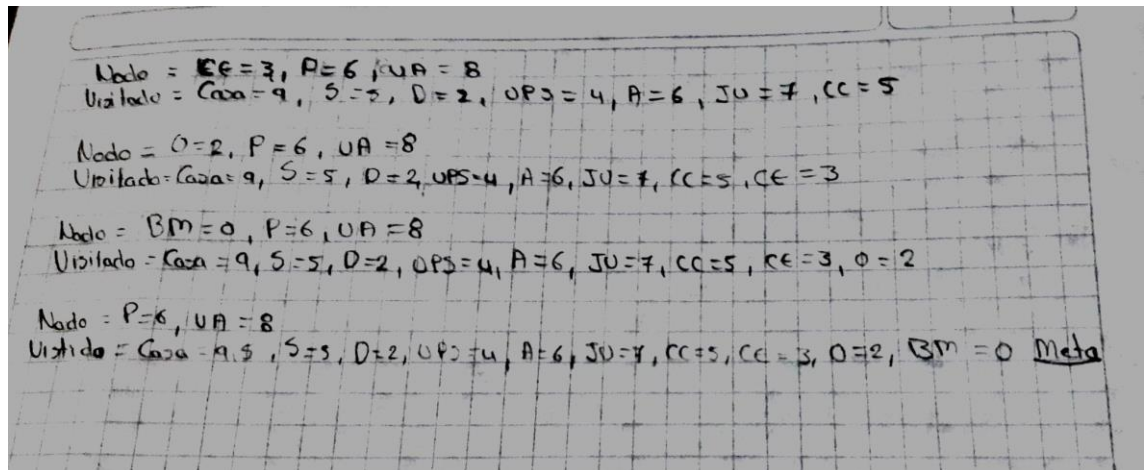 Nodo = CE = 3, P = 6, UA = 8
Visitado = Casa = 9, S = 5, D = 2, UPS = 4, A = 6, JU = 7, CC = 5
Nodo = O = 2, P = 6, UA = 8
Visitado = Casa = 9, S = 5, D = 2, UPS = 4, A = 6, JU = 7, CC = 5, CE = 3
Nodo = BM = 0, P = 6, UA = 8
Visitado = Casa = 9, S = 5, D = 2, UPS = 4, A = 6, JU = 7, CC = 5, CE = 3, O = 2
Nodo = P = 6, UA = 8
= Casa = 9.5, S = 5, D = 2, UPS = 4, A = 6, JU = 7, CC = 5, CE = 3, O = 2, BM = 0 Meta